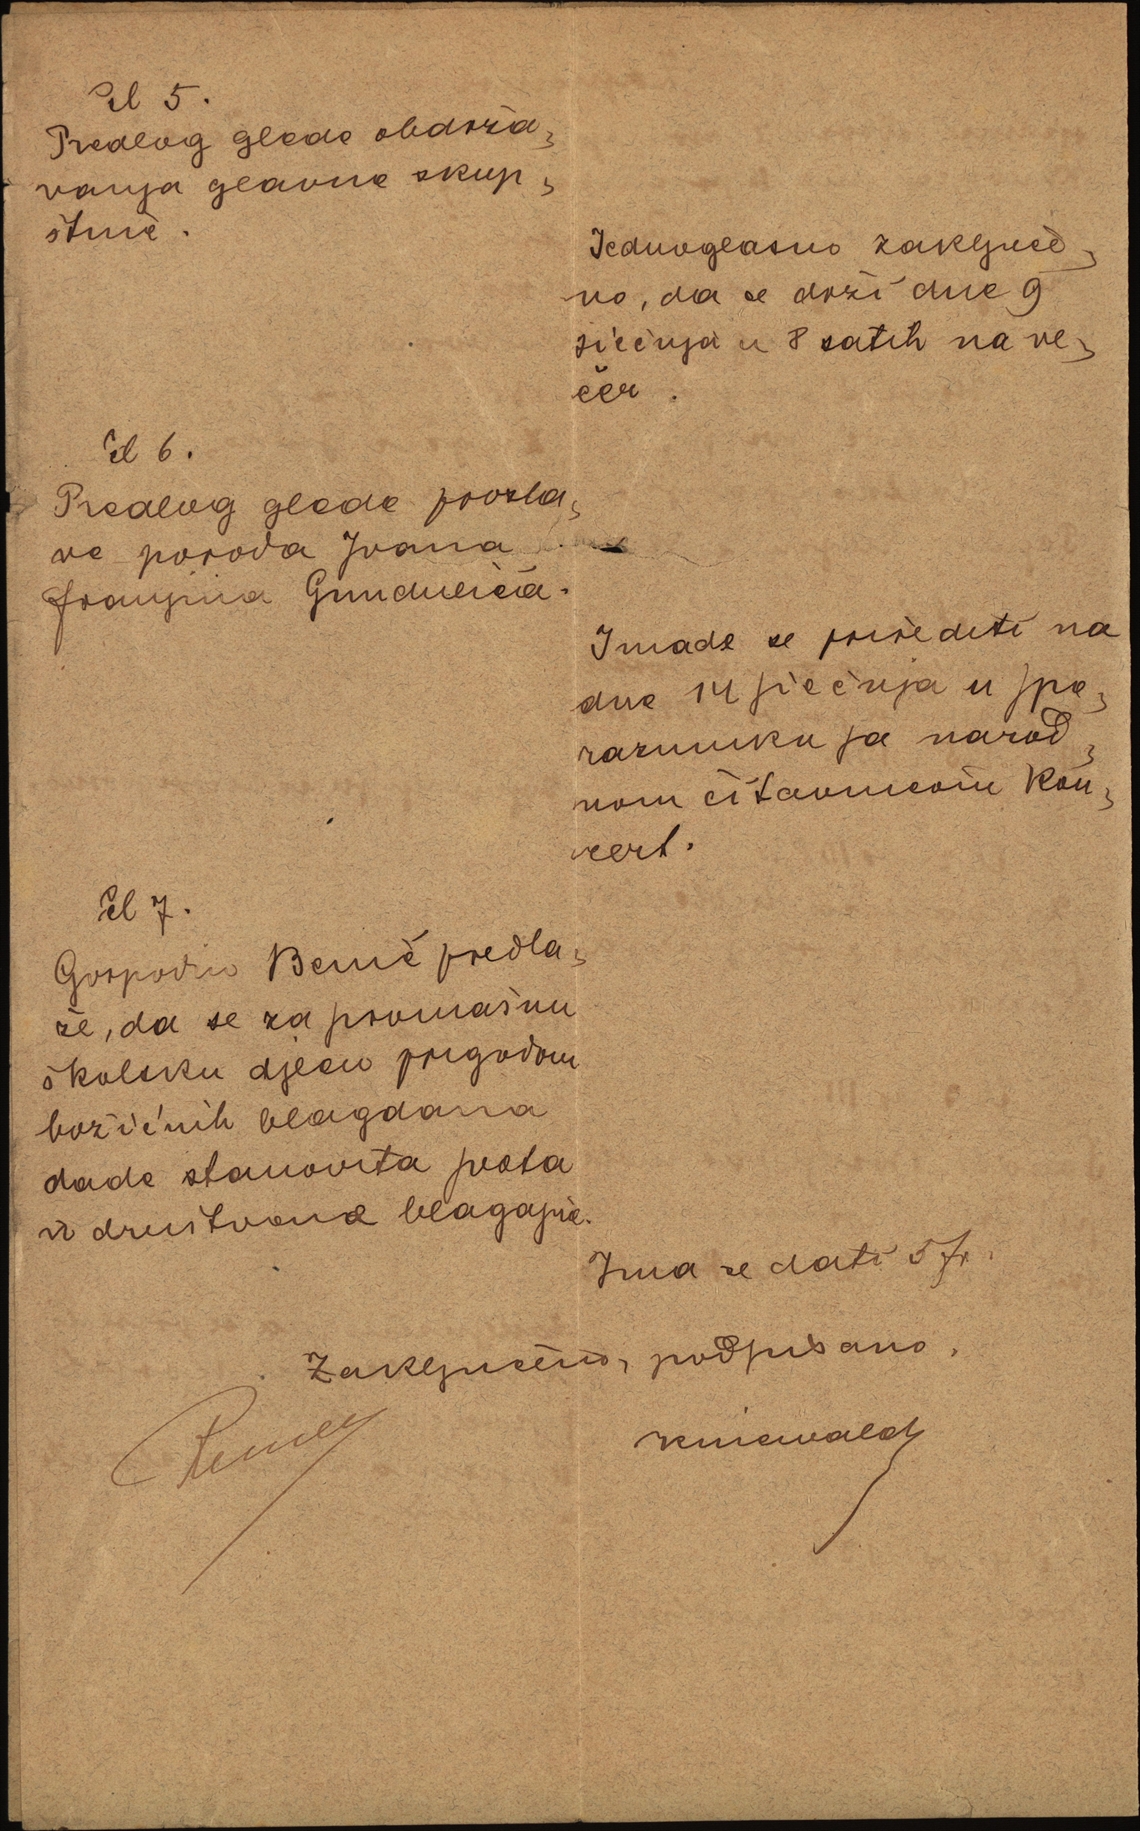 Čl 5.
Predlog glede obdrža„
vanja glavne skup„
štine.
Jednoglasno zaključe„
no, da se drži dne 9
siečnja u 8 satih na ve„
čer.
Čl 6.
Predlog glede prosla„
ve poroda Ivana
Franjina Gundulića.
Imade se prirediti na
dne 14 siečnja u spo„
razumku sa narod„
nom čitaonicom kon„
cert.
Čl 7.
Gospodin Benić predla„
že, da se za siromašnu
školsku djecu prigodom
božićnih blagdana
dade stanovita svota
iz društvene blagajne.
Ima se dati 5 fr.
Zaključeno, podpisano.
Kniewald